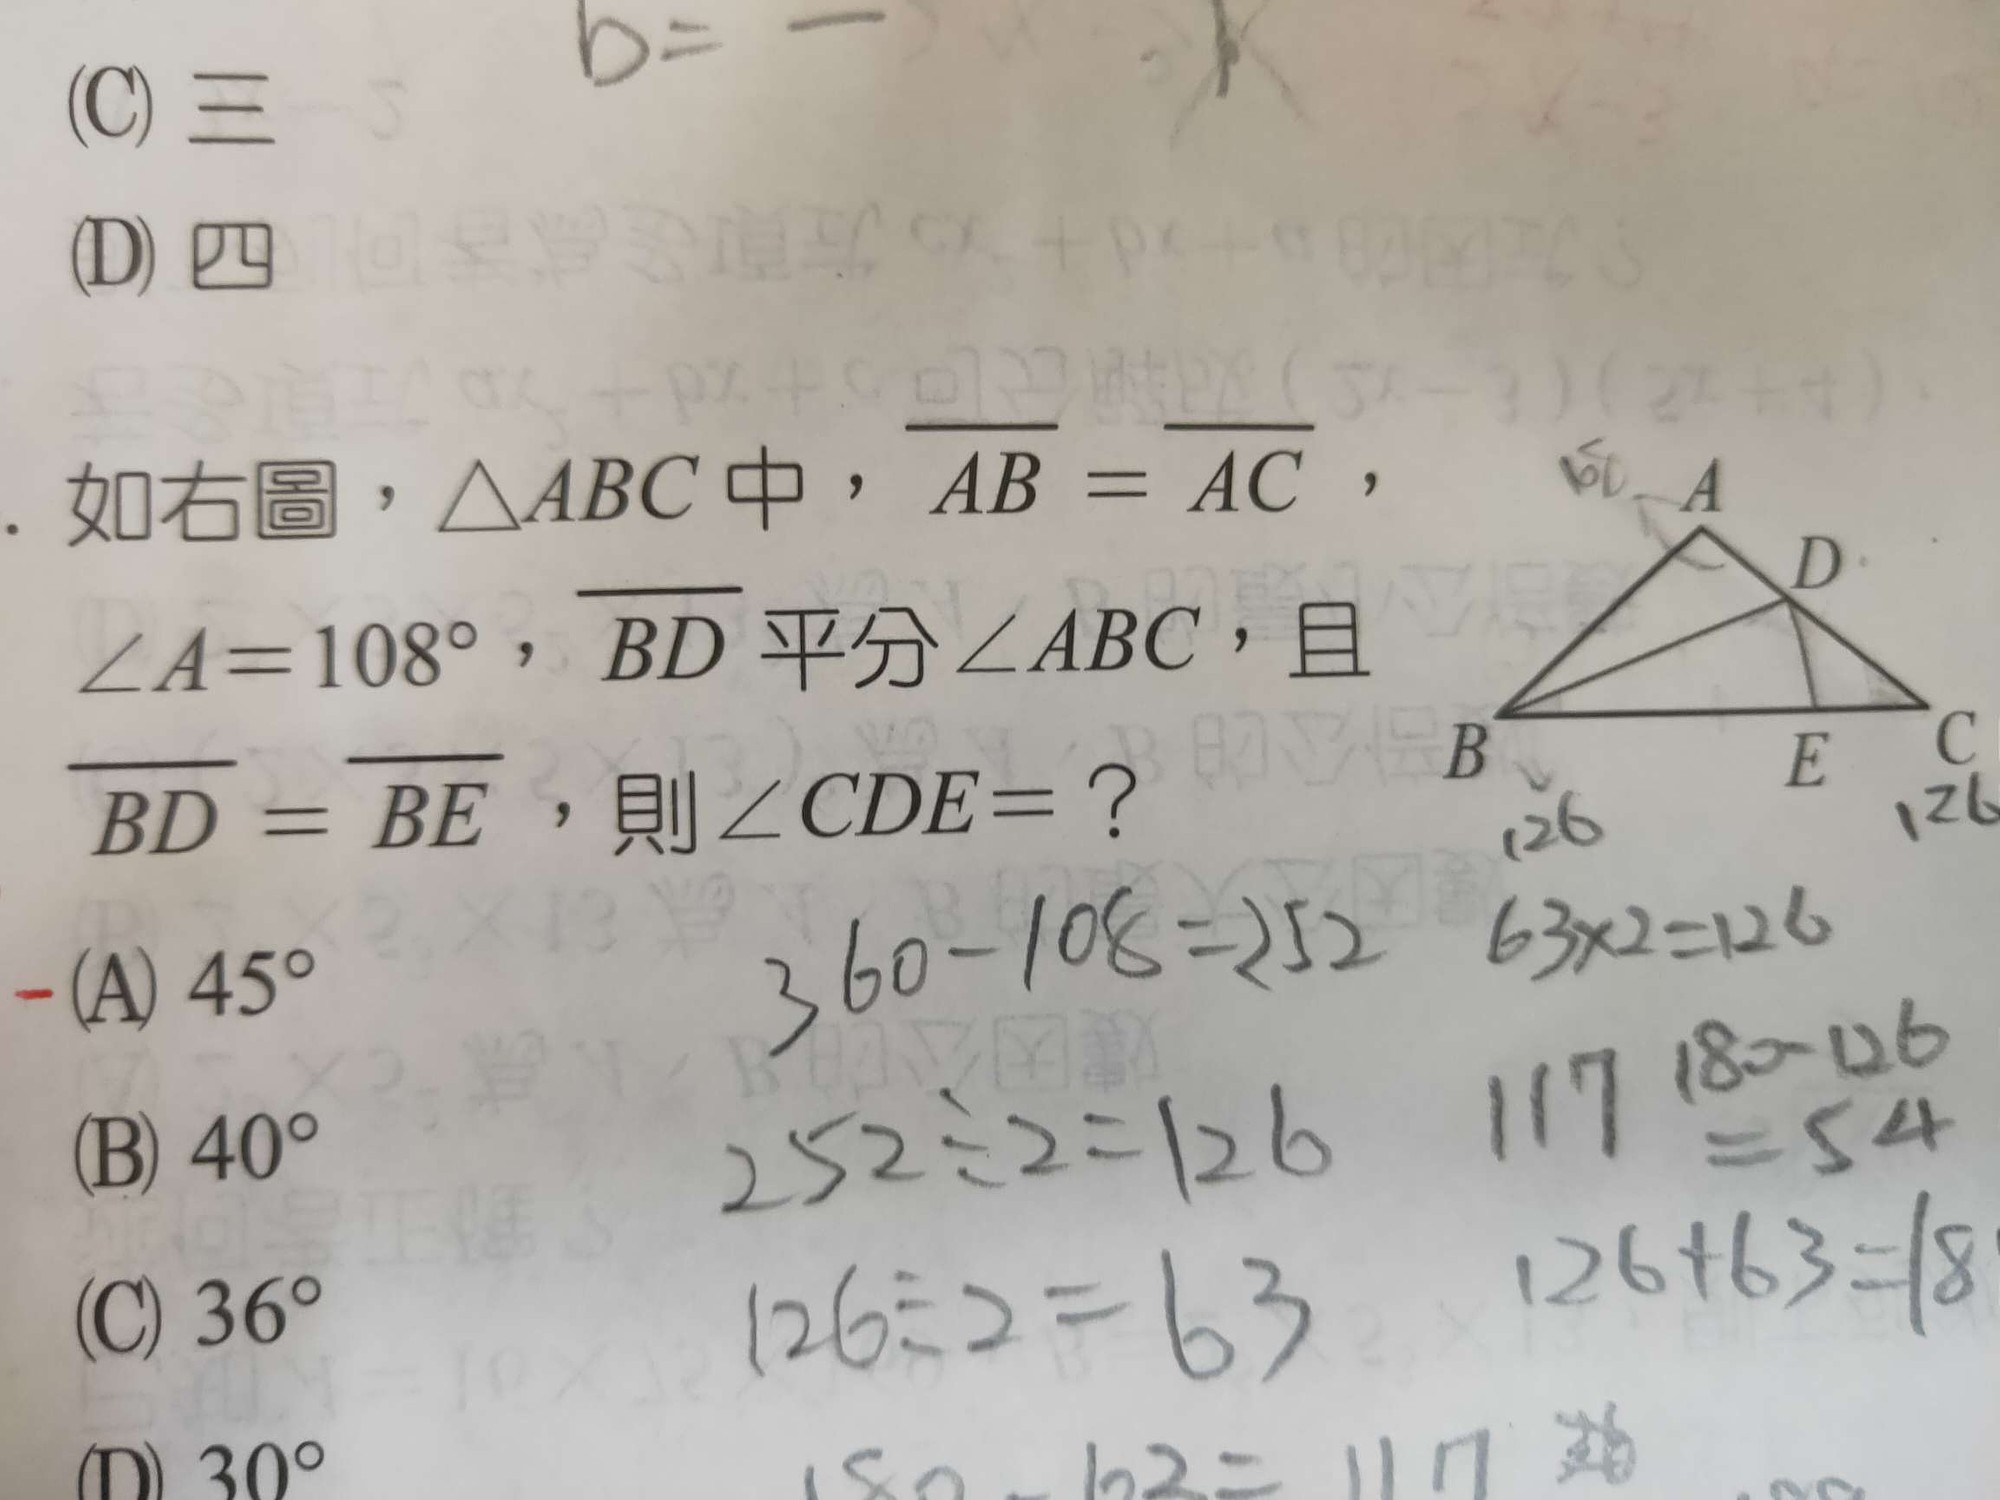 b = −
(C) 三
(D) 四
如右圖，△ABC 中，AB = AC，
∠A＝108°，BD 平分∠ABC，且
BD = BE，則∠CDE＝？
A
D
B
E
C
126
126
(A) 45°
(B) 40°
(C) 36°
(D) 30°
360−108=252
252÷2=126
126÷2=63
180−63=117
63×2=126
117
180−126
=54
126+63=18